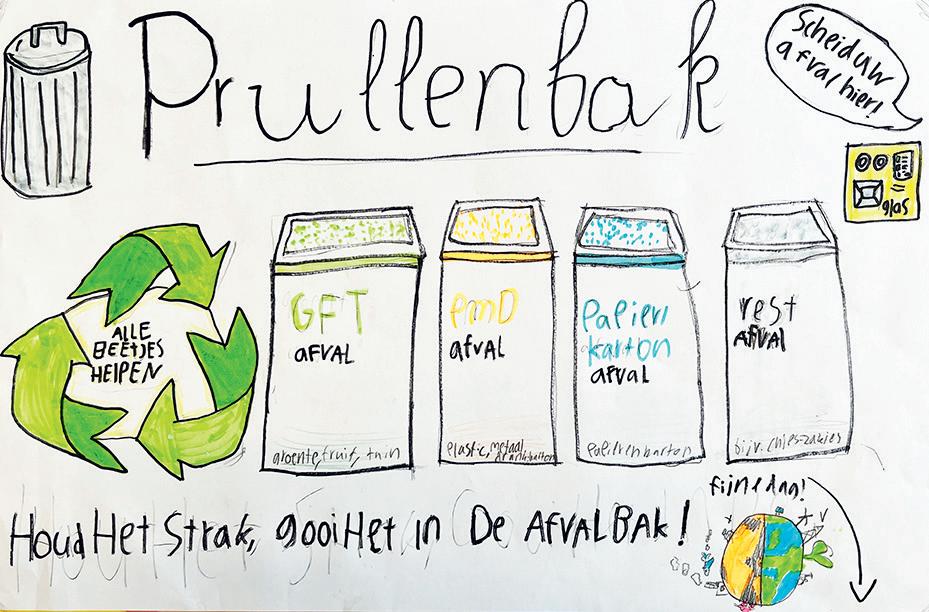 Prullenbak
Scheid uw
afval hier!
glas
ALLE
BEETJES
HELPEN
GFT
AFVAL
groente, fruit, tuin
PmD
afvAL
plastic, metaal
drankkarton
Papier/
karton
afvaL
Papier en karton
rest
AfvAL
bijv. chips-zakjes
fijne dag!
Houd Het Strak, gooi Het in De AfvALBAk!